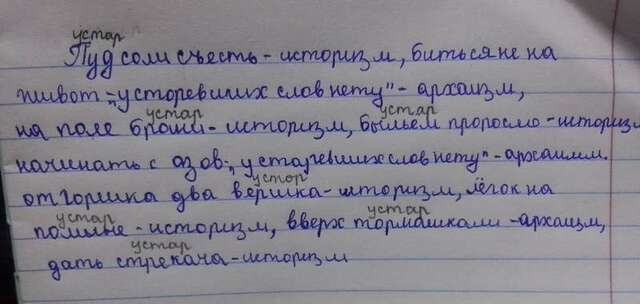 устар
Пуд соли съесть - историзм, биться не на
живот - „усторевших слов нету" - архаизм,
устар устар
на поле брани - историзм, быльем проросло - историзм
начинать с азов -„ устаревших слов нету" - архаимм.
устор
от горшка два вершка - историзм, лёгок на
устар устар
помине - историзм, вверх тормашками - архаизм,
устар
дать стрекача - историзм